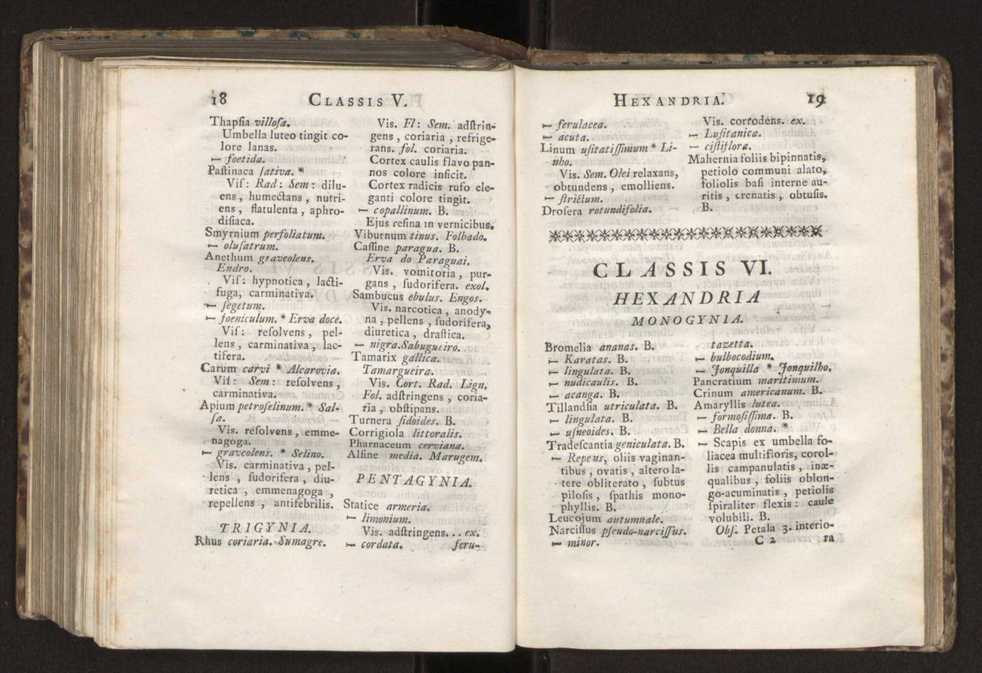 18 CLASSIS V.
Thapſia villoſa.
Umbella luteo tingit co-
lore lanas.
— foetida.
Paſtinaca ſativa. *
Viſ: Rad: Sem: dilu-
ens, humectans, nutri-
ens, flatulenta, aphro-
diſiaca.
Smyrnium perfoliatum.
— oluſatrum.
Anethum graveolens.
Endro.
Viſ: hypnotica, lacti-
fuga, carminativa.
— ſegetum.
— foeniculum. * Erva doce.
Viſ: reſolvens, pel-
lens, carminativa, lac-
tifera.
Carum carvi * Alcarovia.
Viſ: Sem: reſolvens,
carminativa.
Apium petroſelinum. * Sal-
ſa.
Vis. reſolvens, emme-
nagoga.
— graveolens. * Selino.
Vis. carminativa, pel-
lens, ſudorifera, diu-
retica, emmenagoga,
repellens, antifebrilis.
TRIGYNIA.
Rhus coriaria. Sumagre.
Vis. Fl: Sem. adſtrin-
gens, coriaria, refrige-
rans. fol. coriaria.
Cortex caulis flavo pan-
nos colore inficit.
Cortex radicis rufo ele-
ganti colore tingit.
— copallinum. B.
Ejus reſina in vernicibus.
Viburnum tinus. Folhado.
Caſſine paragua. B.
Erva do Paraguai.
Vis. vomitoria, pur-
gans, ſudorifera. exol.
Sambucus ebulus. Engos.
Vis. narcotica, anody-
na, pellens, ſudorifera,
diuretica, draſtica.
— nigra. Sabugueiro.
Tamarix gallica.
Tamargueira.
Vis. Cort. Rad. Lign.
Fol. adſtringens, coria-
ria, obſtipans.
Turnera ſidoides. B.
Corrigiola littoralis.
Pharnaceum cerviana.
Alſine media. Marugem.
PENTAGYNIA.
Statice armeria.
— limonium.
Vis. adſtringens... ex.
— cordata. feru-
HEXANDRIA. 19
— ferulacea.
— acuta.
Linum uſitatiſſimum * Li-
nho.
Vis. Sem. Olei relaxans,
obtundens, emolliens.
— ſtrictum.
Droſera rotundifolia.
Vis. corrodens. ex.
— Luſitanica.
— ciſtiflora.
Mahernia foliis bipinnatis,
petiolo communi alato,
foliolis baſi interne au-
ritis, crenatis, obtuſis.
B.
CLASSIS VI.
HEXANDRIA
MONOGYNIA.
Bromelia ananas. B.
— Karatas. B.
— lingulata. B.
— nudicaulis. B.
— acanga. B.
Tillandſia utriculata. B.
— lingulata. B.
— uſneoides. B.
Tradeſcantia geniculata. B.
— Repens, oliis vaginan-
tibus, ovatis, altero la-
tere obliterato, ſubtus
piloſis, ſpathis mono-
phyllis. B.
Leucojum autumnale.
Narciſſus pſeudo-narciſſus.
— minor.
— tazetta.
— bulbocodium.
— Jonquilla * Jonquilho.
Pancratium maritimum.
Crinum americanum. B.
Amaryllis lutea.
— formoſiſſima. B.
— Bella donna. *
— Scapis ex umbella fo-
liacea multifloris, corol-
lis campanulatis, inæ-
qualibus, foliis oblon-
go-acuminatis, petiolis
ſpiraliter flexis: caule
volubili. B.
Obſ. Petala 3. interio-
C 2 ra